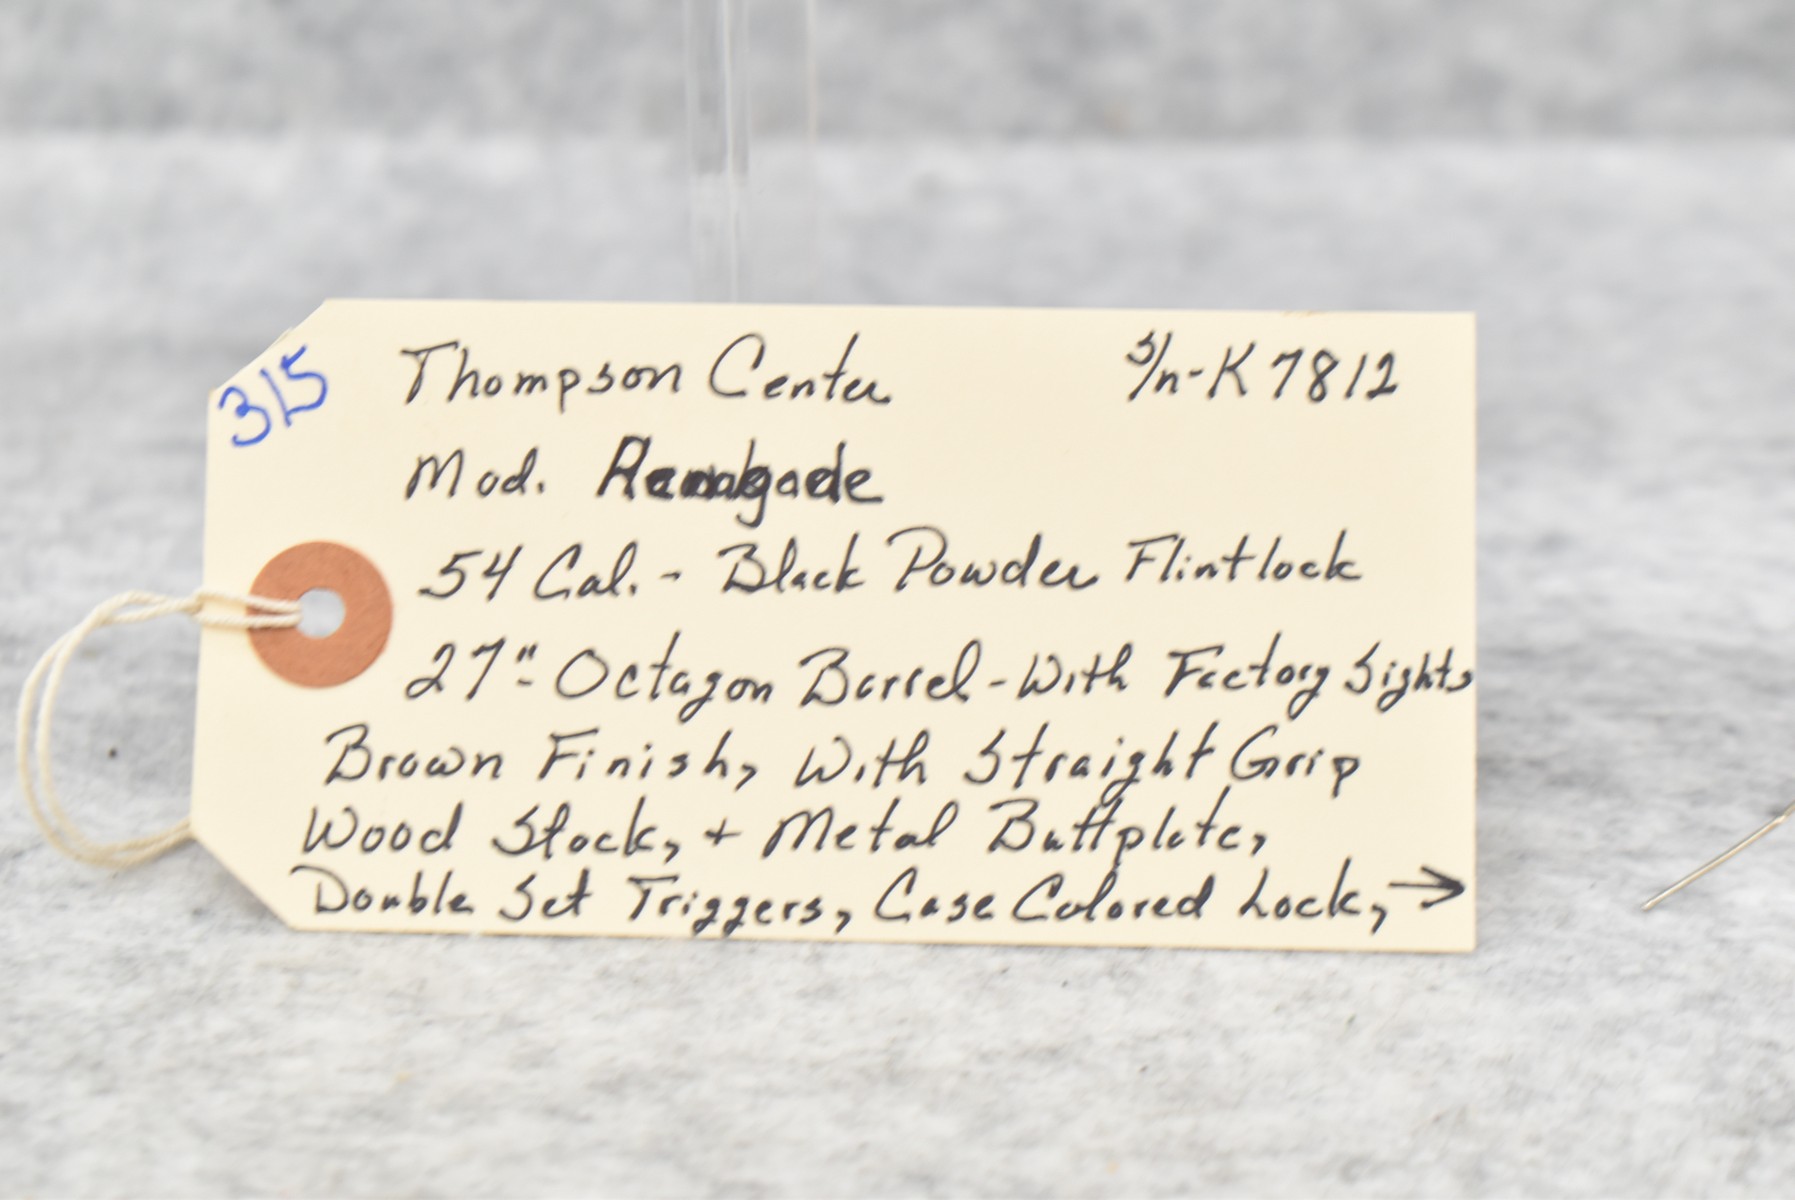 315
Thompson Center S/n-K7812
Mod. Renegade
54 Cal. - Black Powder Flintlock
27"- Octagon Barrel - With Factory Sights
Brown Finish, With Straight Grip
Wood Stock, + Metal Buttplate,
Double Set Triggers, Case Colored Lock, →